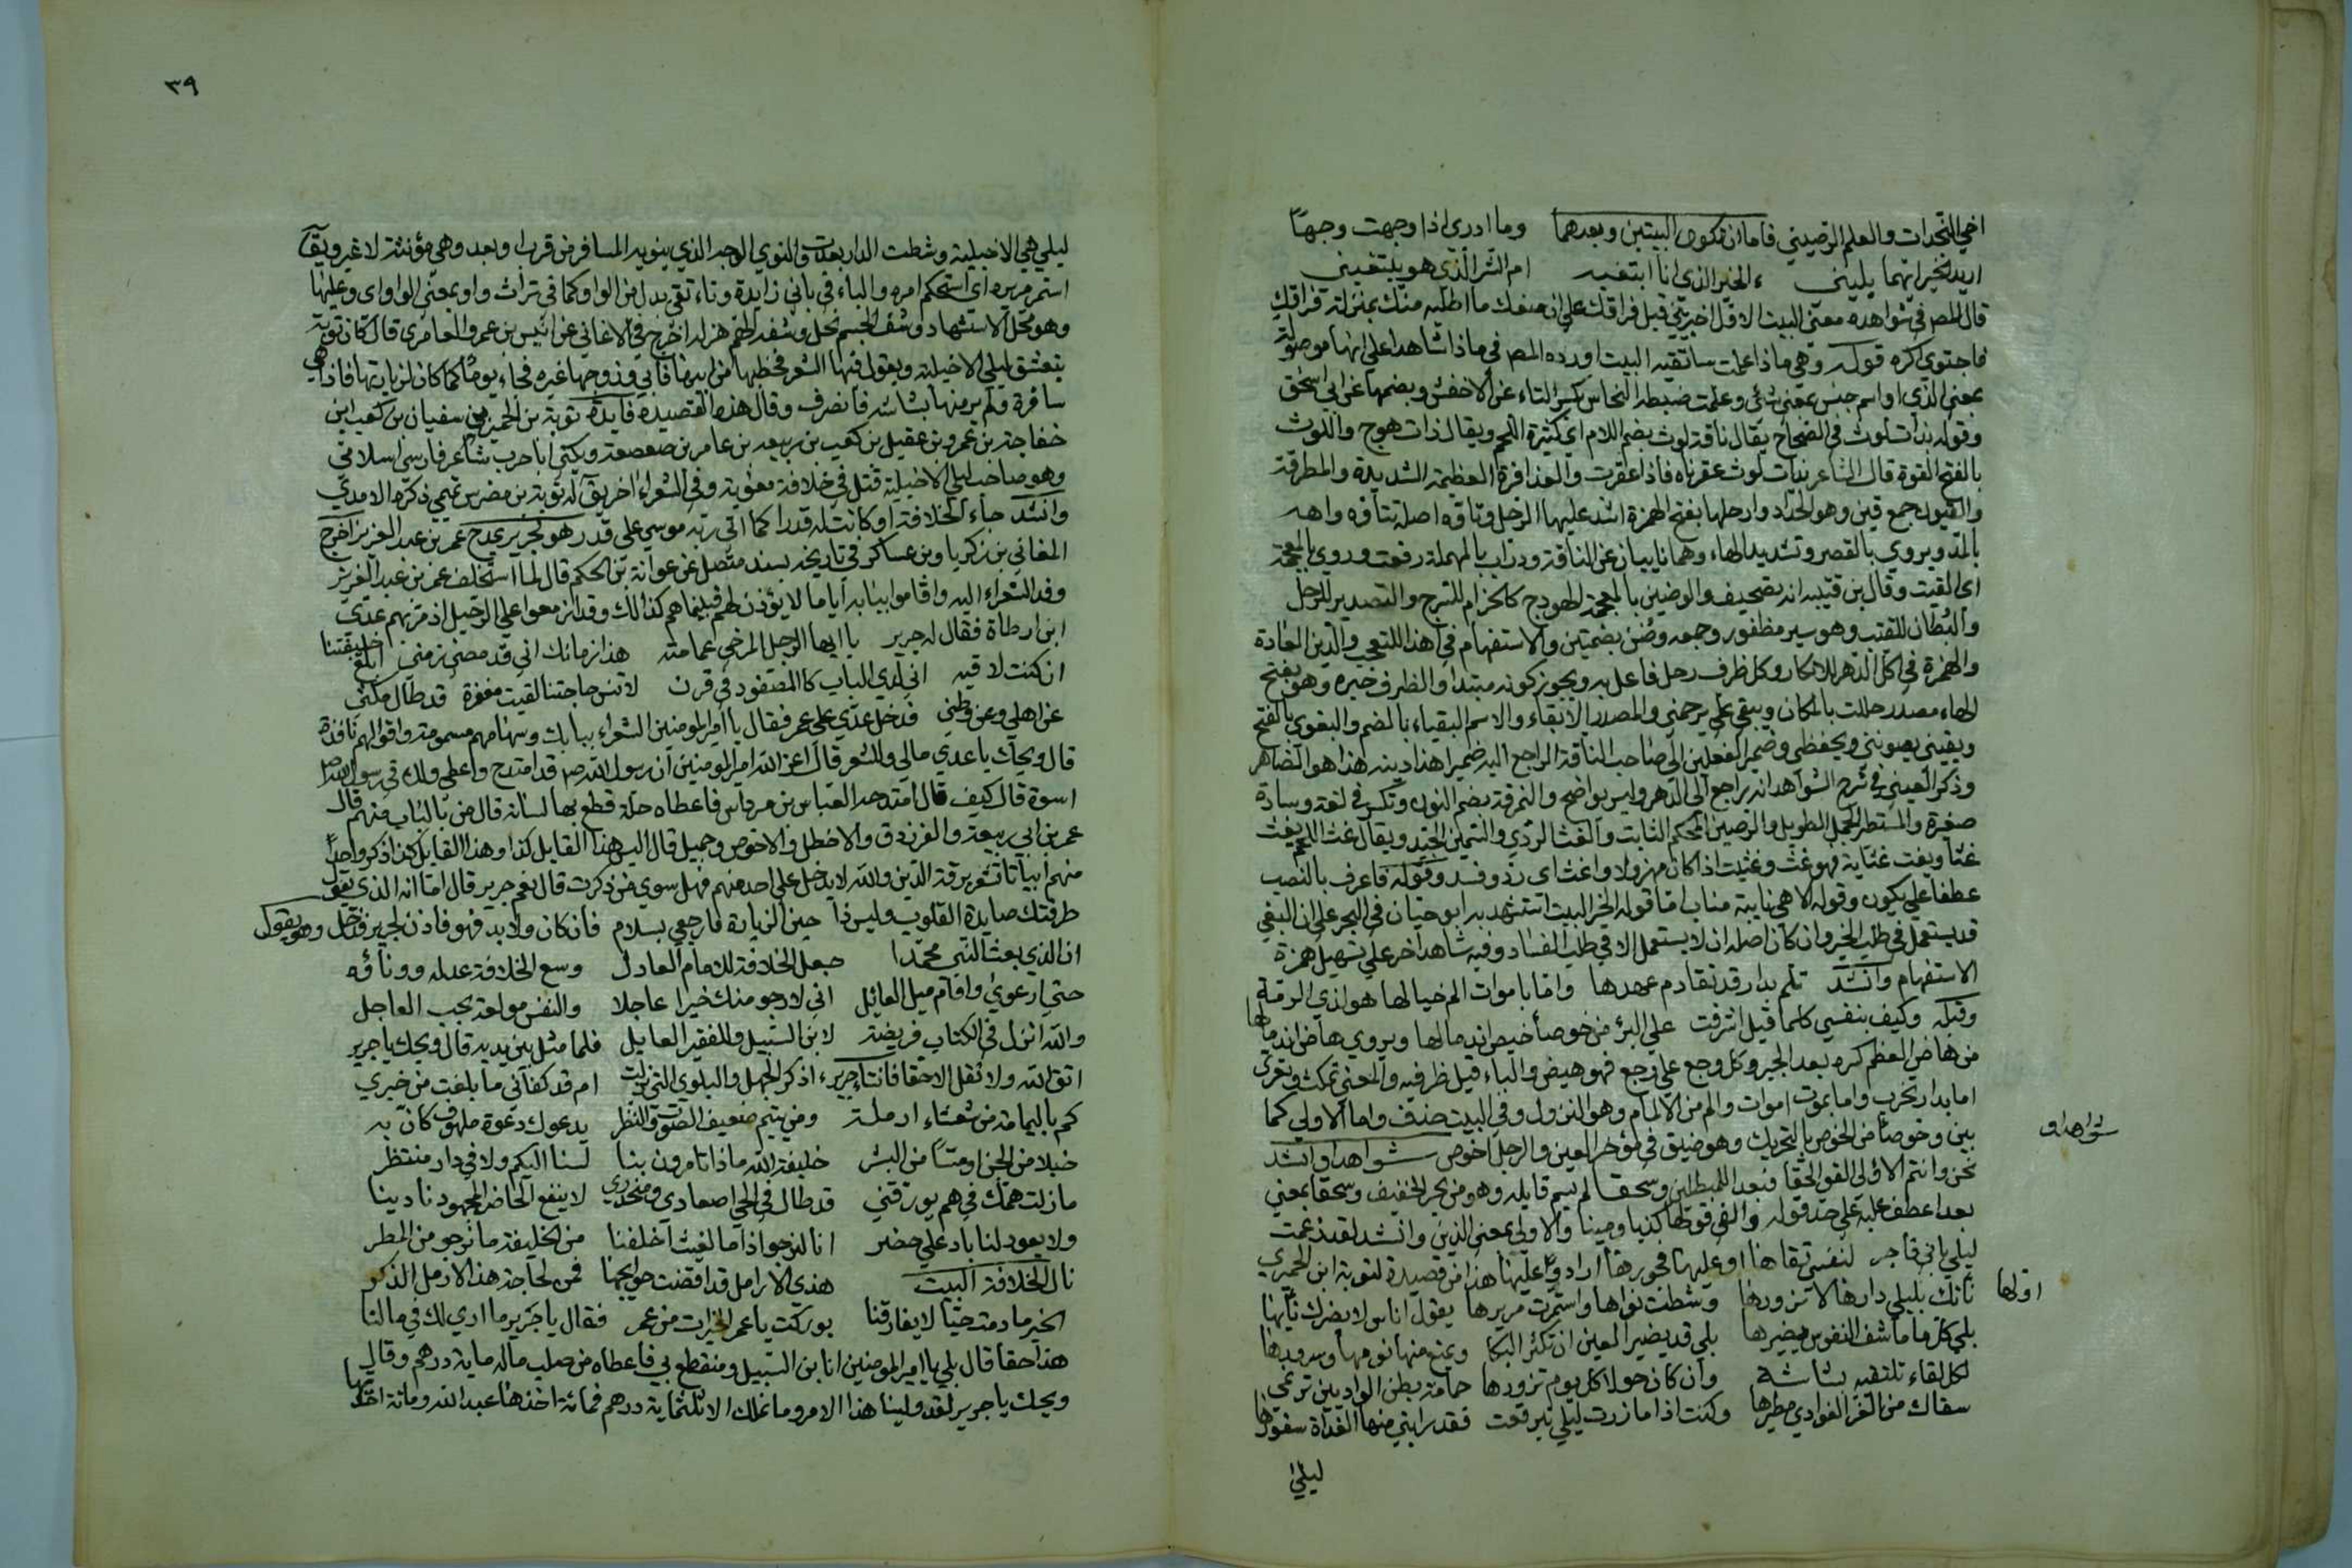 اخي النجدات والعلم الرصيني فاما ان تكون البيتين وبعدهما وما ادري اذا وجهت وجهًا
اريد الخير ايهما يليني ءالخير الذي انا ابتغيه ام الشر الذي هو يبتغيني
قال المص في شواهده معنى البيت الاول اخبريني قبل فراقك على ان منعك ما اطلبه منك بمنزلة فراقك
فاجتوي اكره قوله وهي ماذا علمت ساتقيه البيت اورده المص في ماذا شاهدا على انها موصولة
بمعنى الذي او اسم جنس بمعنى شئ وعلمت ضبطه النحاس بكسر التاء عن الاخفش وبضمها عن ابي اسحق
وقوله بذات لوث في الصحاح يقال ناقة لوث بضم اللام اي كثيرة اللحم ويقال ذات هوج واللوث
بالفتح القوة قال الشاعر بذات لوث عفرناه فاذا عقرت والعذافرة العظيمة الشديدة والمطرقة
والقيون جمع قين وهو الحداد وارحلها بفتح الهمزة اشد عليها الرحل وتاوه اصله تتأوه واهه
بالمد ويروي بالقصر وتشديد الهاء وهما نايبان عن الناقة ودرات بالمهملة رفعت وروي بالمعجمة
اي القيت وقال بن قتيبه انه تصحيف والوضين بالمعجمة للهودج كالحزام للسرج والتصدير للرحل
والبطان للقتب وهو سير مظفور وجمعه وضن بضمتين والاستفهام في اهذا للتعجب والدين العادة
والهمزة في اكل الدهر للانكار وكل ظرف رحل فاعل به ويجوز كونه مبتدا والظرف خبره وهو بفتح
الحاء مصدر حللت بالمكان ويبقي علي يرحمني والمصدر الابقاء والاسم البقياء بالضم والبقوى بالفتح
ويقيني يصونني ويحفظي وضمير الفعلين الى صاحب الناقة الراجع اليه ضمير اهذا دينه هذا هو الظاهر
وذكر العيني في شرح الشواهد انه يراجع الى الدهر وليس بواضح والنمرقة بضم النون وتكسر في لغة وسادة
صغيرة والمسنطر الجمل الطويل والرصين المحكم الثابت والغث الردي والسمين الجيد ويقال غث اللحم يغث
غثا ويغث غثاية فهو غث وغثيث اذا كان مهزولا واغث اي ردؤ وفسد وقوله فاعرف بالنصب
عطفا على يكون وقوله الا هي نايبة مناب اما قوله الخير البيت استشهد به ابو حيان في البحر على ان البغي
قد يستعمل في طلب الخير وان كان اصله ان لا يستعمل الا في طلب الفساد وفيه شاهد اخر على تسهيل همزة
الاستفهام وانشد تلم بدار قد تقادم عهدها واما باموات الم خيالها هو لذي الرمة
وقبله وكيف بنفسي كلما قيل اشرفت علي البرء من خوصاء خيص اندمالها ويروي هاض اندمالها
من هاض العظم كسره بعد الجبر وكل وجع علي وجع فهو هيض والباء قيل ظرفيه والمعنى تمكث وتعرى
اما بدار تخرب واما بموت اموات والم من الالمام وهو النزول وفي البيت حذف واما الاولى كما
بين وخوصاء من الخوص بالتحريك وهو ضيق في مؤخر العين والرجل اخوص شواهد او انشد
شواهد او
نحن وانتم الاولى القوا الحقا فبعدا للمبطلين وسحقا لم يسم قايله وهو من بحر الخفيف وسحقا بمعني
بعدا عطف عليه علي حد قوله والفي قولها كذبا ومينا والاولى بمعنى الذين وانشد لقد زعمت
ليلي باني فاجر لنفسي تقاها او عليها فجورها اراد وعليها هذا من قصيدة لتوبة ابن الحميري
اولها نأتك بليلي دارها لا تزورها وشطت نواها واستمرت مريرها يقول اناس لا يضرك نأيها
بلي كل ما شف النفوس يضيرها بلي قد يضير العين ان تكثر البكا ويمنع منها نومها وسرورها
لكل لقاء تلتقيه بشاشة وان كان حولا كل يوم تزورها حمامة بطن الواديين ترنمي
سقاك من الغر الغوادي مطيرها وكنت اذا ما زرت ليلي تبرقعت فقد رابني منها الغداة سفورها
ليلي
٣٩
ليلي هي الاخيلية وشطت الدار بعدت والنوي الوجه الذي ينويه المسافر من قرب او بعد وهي مؤنثة لا غير ويقال
استمر مريره اي استحكم امره والباء في باني زايدة وتاء تقي بدل من الواو كما في تراث واو بمعنى الواو اي وعليها
وهو محل الاستشهاد وشف الجسم نحل وشفه الهم هزله اخرج في الاغاني عن انيس بن عمرو العامري قال كان توبة
يتعشق ليلي الاخيلية ويقول فيها الشعر فخطبها من ابيها فابي وزوجها غيره فجاء يومًا كما كان لزيارتها فاذا هي
سافرة ولم ير منها بشاشة فانصرف وقال هذه القصيدة فايدة توبة بن الحمير بن سفيان بن كعب ابن
خفاجة بن عمرو بن عقيل بن كعب بن ربيعه بن عامر بن صعصعة ويكني ابا حرب شاعر فارسي اسلامي
وهو صاحب ليلي الاخيلية قتل في خلافة معوية وفي الشعراء اخر يقال له توبة بن مضرس تميمي ذكره الامدي
وانشد جاء الخلافة او كانت له قدرا كما اتي ربه موسي علي قدر هو لجرير يمدح عمر بن عبد العزيز اخرج
المعافي بن زكريا وبن عساكر في تاريخه بسند متصل عن عوانة بن الحكم قال لما استخلف عمر بن عبد العزيز
وفد الشعراء اليه واقاموا ببابه اياما لا يؤذن لهم فبينما هم كذلك وقد ازمعوا علي الرحيل اذ مر بهم عدي
ابن ارطاة فقال له جرير يا ايها الرجل المرخي عمامته هذا زمانك اني قد مضي زمني ابلغ خليفتنا
ان كنت لاقيه اني لدي الباب كالمصفود في قرن لا تنس حاجتنا لقيت مغفرة قد طال مكثي
عن اهلي وعن وطني فدخل عدي علي عمر فقال يا امير المومنين الشعراء ببابك وسهامهم مسمومة واقوالهم نافذة
قال ويحك يا عدي مالي وللشعر قال اعز الله امير المومنين ان رسول الله صم قد امتدح واعطي ولك في رسول الله صم
اسوة قال كيف قال امتدحه العباس بن مرداس فاعطاه حلة قطع بها لسانه قال من بالباب منهم قال
عمر بن ابي ربيعة والفرزدق والاخطل والاخوص وجميل قال اليس هذا القايل كذا وهذا القايل كذا ذكر واحدًا
منهم ابياتا تشعر برقة الدين والله لا يدخل علي احد منهم فهل سوي من ذكرت قال نعم جرير قال اما انه الذي يقول
طرقتك صايدة القلوب وليس ذا حين الزيارة فارجعي بسلام فان كان ولا بد فهو فاذن لجرير فدخل وهو يقول
ان الذي بعث النبي محمدا جعل الخلافة للامام العادل وسع الخلافة عدله ووفاؤه
حتي ارعوي واقام ميل المائل اني لارجو منك خيرا عاجلا والنفس مولعة بحب العاجل
والله انزل في الكتاب فريضة لابن السبيل وللفقير العايل فلما مثل بين يديه قال ويحك يا جرير
اتق الله ولا تقل الا حقا فانشاء جرير ءاذكر الجهل والبلوي التي نزلت ام قد كفاني ما بلغت من خبري
كم باليمامة من شعثاء ارملة ومن يتيم ضعيف الصوت والنظر يدعوك دعوة ملهوف كان به
خبلا من الجن او مسًا من البشر خليفة الله ماذا تامرون بنا لسنا اليكم ولا في دار منتظر
ما زلت همك في هم يورقني قد طال في الحي اصعادي ومنحدري لا ينفع الحاضر المجهود نادينا
ولا يعود لنا باد علي حضر انا لنرجوا اذا ما الغيث اخلفنا من الخليفة ما نرجو من المطر
نال الخلافة البيت هذي الارامل قد اقضت حوايجها فمن لحاجة هذا الارمل الذكر
الخير ما دمت حيًا لا يفارقنا بوركت يا عمر الخيرات من عمر فقال يا جرير ما اري لك في ما لنا
هذا حقا قال بلي يا امير المومنين انا بن السبيل ومنقطع بي فاعطاه من صلب ماله ماية درهم وقال
ويحك يا جرير لقد ولينا هذا الامر وما نملك الا ثلثماية درهم فمائة اخذها عبد الله ومائة اخذتها